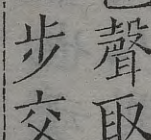 聲取
步交